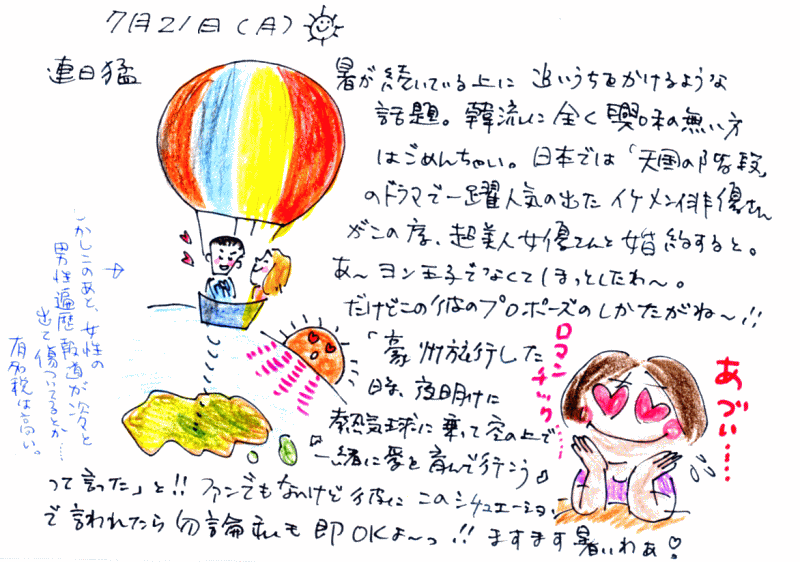 7月21日(月)
連日猛
暑が続いている上に追いうちをかけるような
話題。韓流に全く興味の無い方
はごめんちゃい。日本では「天国の階段」
のドラマで一躍人気の出たイケメン俳優さん
がこの度、超美人女優さんと婚約すると。
あ〜ヨン王子でなくてほっとしたわ〜。
だけどこの彼のプロポーズのしかたがね〜!!
「豪州旅行した
時、夜明けに
熱気球に乗って空の上で
『一緒に愛を育んで行こう』
って言った」と!!ファンでもないけど彼にこのシチュエーショ
で言われたら勿論私も即OKよ〜っ!!ますます暑いわぁ!
ロマンチック…
あづい…
しかしこのあと、女性の
男性遍歴報道が次々と
出て傷ついてるとか…
有名税は高い。